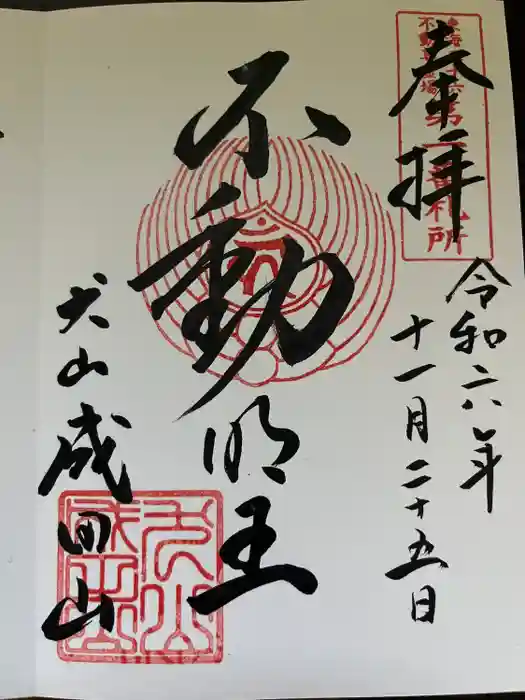 奉拝
第一番札所
令和六年
十一月二十五日
不動明王
犬山成田山